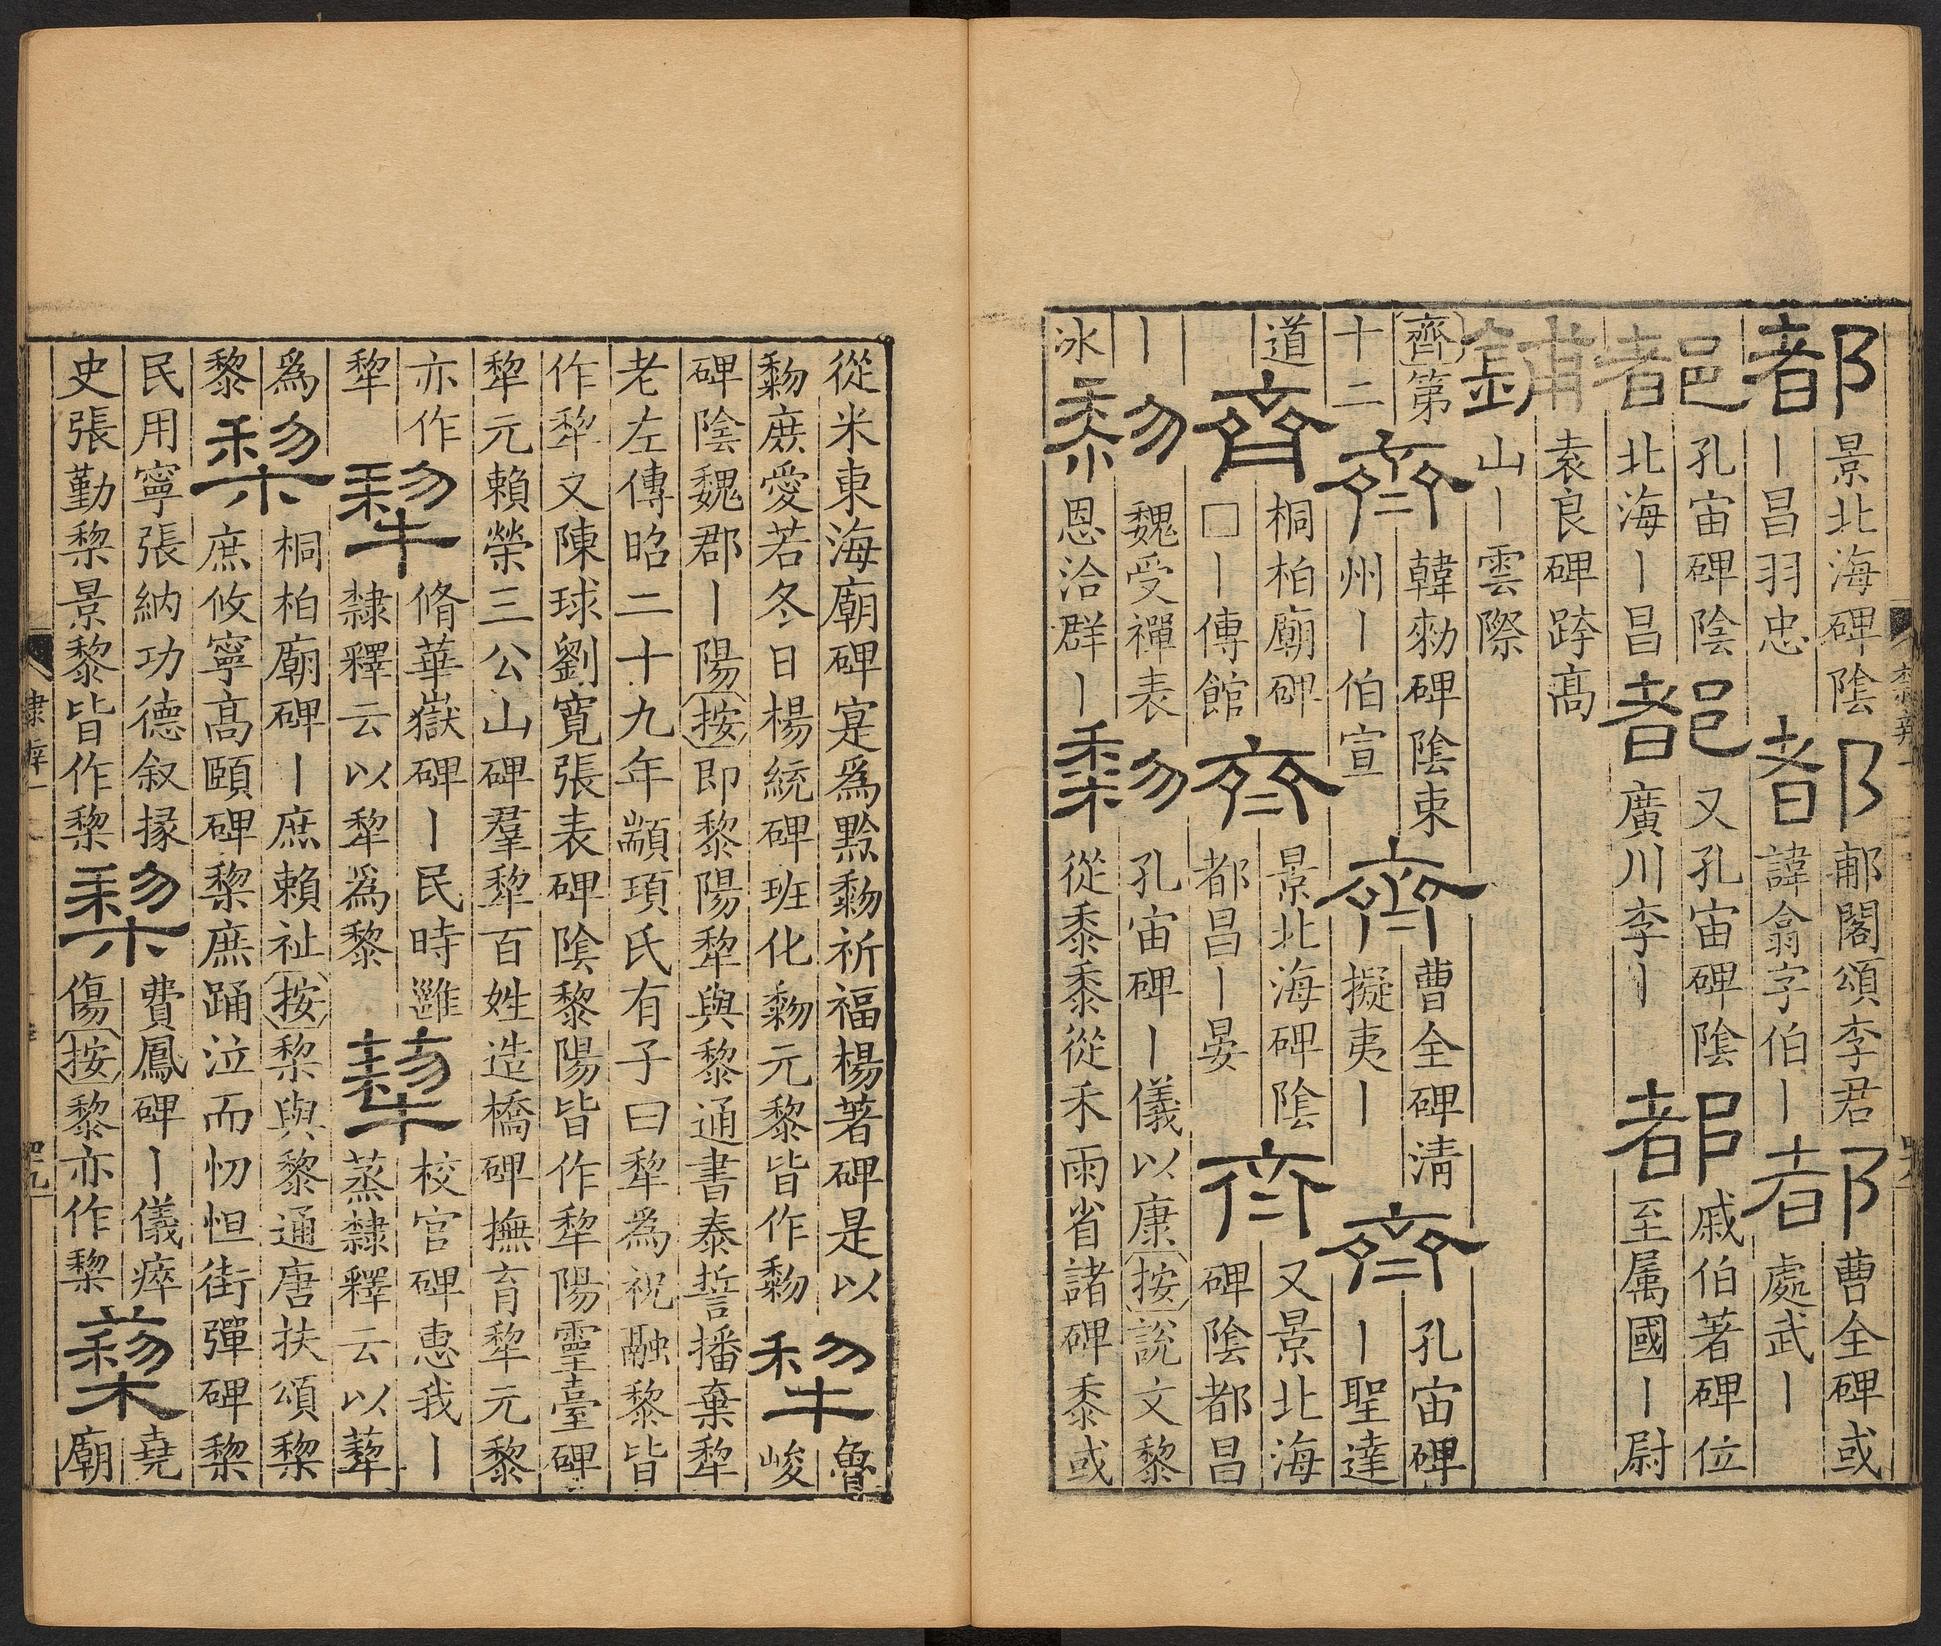 都景北海碑陰丨昌羽忠都郙閣頌李君諱翕字伯丨都曹全碑或處武丨
都孔宙碑陰北海丨昌都又孔宙碑陰廣川李丨都戚伯著碑位至属國丨尉
鋪袁良碑跱高山丨雲際
齊第十二齊韓勑碑陰東州丨伯宣齊曹全碑清擬夷丨齊孔宙碑丨聖達
道齊桐柏廟碑□丨傳館齊景北海碑陰都昌丨晏齊又景北海碑陰都昌
丨冰黎魏受禪表恩洽群丨黎孔宙碑丨儀以康按說文黎從黍黍從禾雨省諸碑黍或
從米東海廟碑寔為黔黎祈福楊著碑是以黎庶愛若冬日楊統碑班化黎元黎皆作黎犂魯峻
碑陰魏郡丨陽按即黎陽犂與黎通書泰誓播棄犂老左傳昭二十九年顓頊氏有子曰犂為祝融黎皆
作犂又陳球劉寬張表碑陰黎陽皆作犂陽靈臺碑犂元賴榮三公山碑羣犂百姓造橋碑撫育犂元黎
亦作犂犂脩華嶽碑丨民時雝隸釋云以犂爲黎䔧校官碑惠我丨蒸隸釋云以䔧
爲黎棃桐柏廟碑丨庶賴祉按棃與黎通唐扶頌棃庶攸寧高頤碑棃庶踊泣而忉怛街彈碑棃
民用寧張納功德叙掾史張勤棃景黎皆作棃棃費鳳碑丨儀瘁傷按黎亦作棃藜堯廟
隸辨一
四九